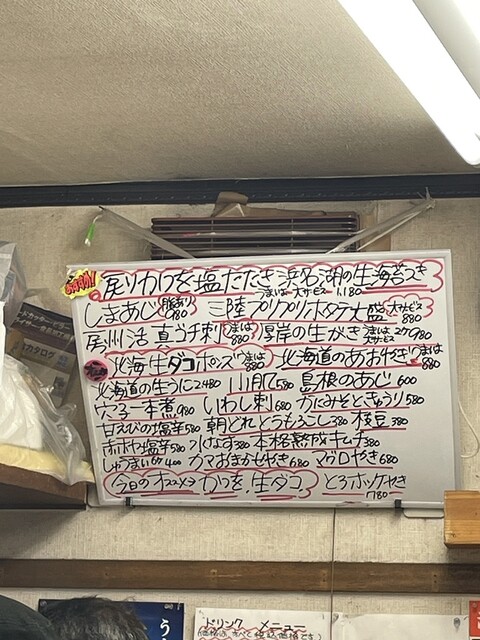 戻りかつを塩たたき 浜名湖の生海苔つき
うまいよ 大サービス 1.180
しまあじ 脂あり 980 三陸プリプリホタテ大盛 大サービス 880
房州活 真ゴチ刺 880 厚岸の生がき 2ケ 980
大サービス
北海生ダコポンズ 880 北海道のあおやぎ 880
北海道の生うに 2480 川月乙 580 島根のあじ 600
穴子一本煮 980 いわし刺 680 かにみそときゅうり 580
甘えびの塩辛 580 朝どれとうもろこし 380 枝豆 380
赤ホヤ塩辛 580 水なす 380 本格熟成キムチ 380
しゅうまい 400 カマおまかせやき 680 マグロやき 680
今日のオススメ→かつを、生ダコ とろホッケやき
780
カタログ
ドリンク メニュー